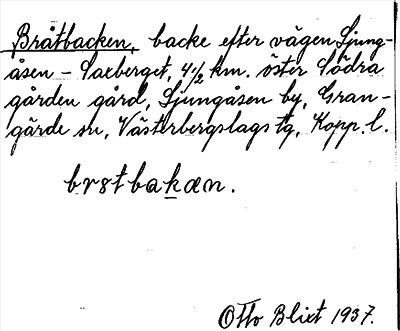 Bråtbacken, backe efter vägen Sjung-
åsen - Saxberget, 4 1/2 km. öster Södra
gården gård, Sjungåsen by, Gran-
gärde sn, Västerbergslags tg, Kopp. l.
brstbakæn.
Otto Blixt 1937.